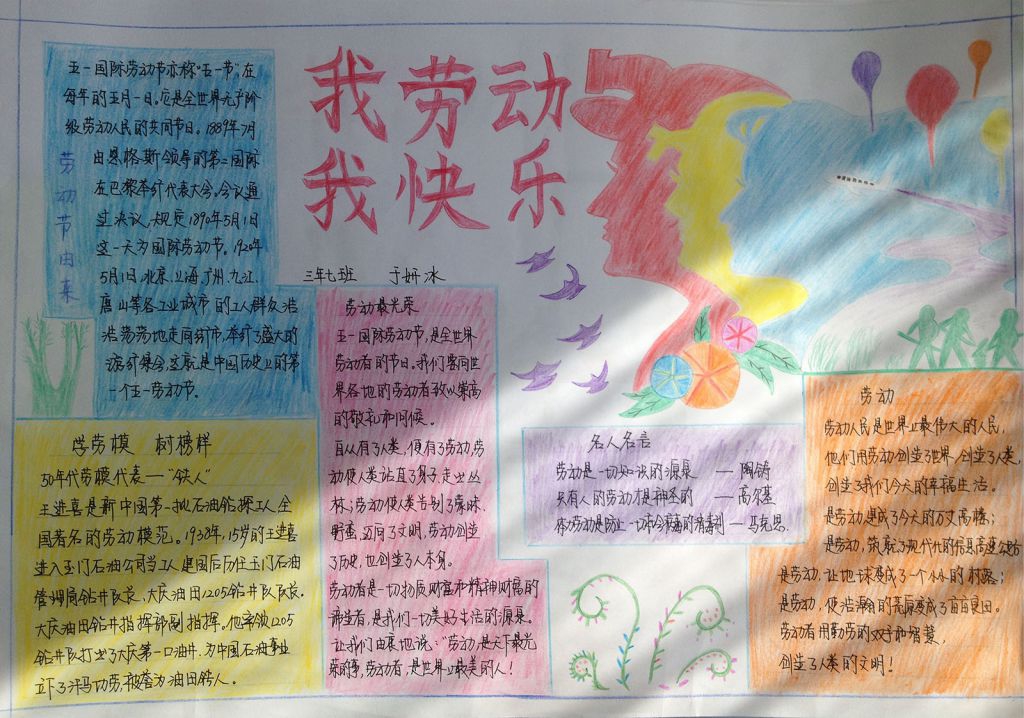 我劳动
我快乐
三年七班 于妍冰
劳动节由来
五一国际劳动节亦称"五一节",在
每年的五月一日。它是全世界无产阶
级劳动人民的共同节日。1889年7月
由恩格斯领导的第二国际
在巴黎举行代表大会。会议通
过决议,规定1890年5月1日
这一天为国际劳动节。1920年
5月1日,北京、上海、广州、九江、
唐山等各工业城市的工人群众浩
浩荡荡地走向街市、举行了盛大的
游行集会,这就是中国历史上的第
一个五一劳动节。
学劳模 树榜样
50年代劳模代表——"铁人"
王进喜是新中国第一批石油钻探工人,全
国著名的劳动模范。1938年,15岁的王进喜
进入玉门石油公司当工人,建国后历任玉门石油
管理局钻井队长、大庆油田1205钻井队队长、
大庆油田钻井指挥部副指挥。他率领1205
钻井队打出了大庆第一口油井,为中国石油事业
立下了汗马功劳,被誉为油田铁人。
劳动最光荣
五一国际劳动节,是全世界
劳动者的节日。我们要向世
界各地的劳动者致以崇高
的敬礼和问候。
自从有了人类,便有了劳动,劳
动使人类站直了身子,走出丛
林;劳动使人类告别了蒙昧、
野蛮,迈向了文明,劳动创造
了历史,也创造了人本身。
劳动者是一切物质财富和精神财富的
缔造者,是我们一切美好生活的源泉。
让我们由衷地说:"劳动是天下最光
荣的事,劳动者,是世界上最美的人!
名人名言
劳动是一切知识的源泉 ——陶铸
只有人的劳动才是神圣的 ——高尔基
体力劳动是防止一切社会病毒的消毒剂——马克思
劳动
劳动人民是世界上最伟大的人民,
他们用劳动创造了世界,创造了人类,
创造了我们今天的幸福生活。
是劳动,建成了今天的万丈高楼;
是劳动,筑就了现代化的信息高速公路
是劳动,让地球变成了一个小小的村落;
是劳动,使浩瀚的荒原变成了亩亩良田。
劳动者用勤劳的双手和智慧,
创造了人类的文明!